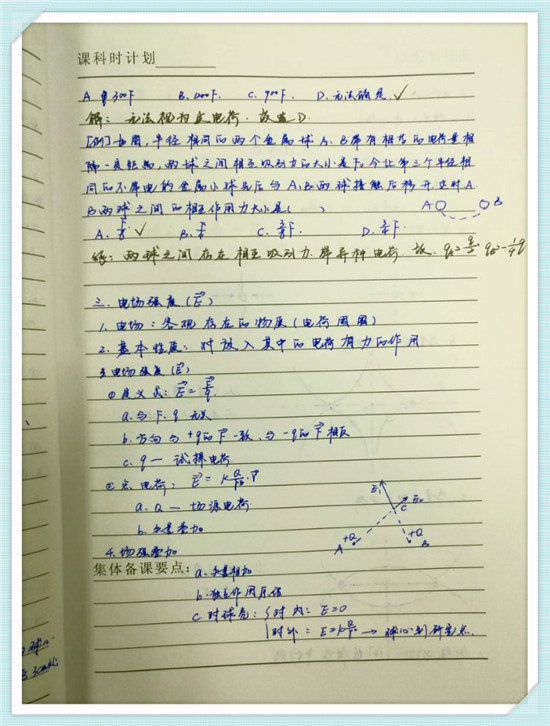 课科时计划
A. 300F B. 1200F. C. 900F. D. 无法确定 ✓
解: 无法视为点电荷. 故选D.
[例] 如图, 半径相同的两个金属球A、B带有相等的电荷量相
隔一定距离, 两球之间相互吸引力的大小是F. 今让第三个半径相
同的不带电的金属小球先后与A、B两球接触后移开. 这时A
B两球之间的相互作用力大小是( ) A B
A. F/8 ✓ B. F/4 C. 3/8F. D. 3/4F.
解: 两球之间存在相互吸引力. 带异种电荷 故.
三. 电场强度 (E)
1. 电场: 客观存在的物质 (电荷周围)
2. 基本性质: 对放入其中的电荷有力的作用
3. 电场强度 (E)
① 定义式: E = F/q
a. 与F. q 无关
b. 方向与+q的F一致, 与-q的F相反
c. q — 试探电荷
② 点电荷:
a. Q — 场源电荷
b. 矢量叠加
4. 场强叠加
E₁ E₂ C
+Q +Q
A B
集体备课要点:
a. 矢量相加
b. 独立作用原理
c 对球壳: 对内: E=0
对外: → 球心到研究点.